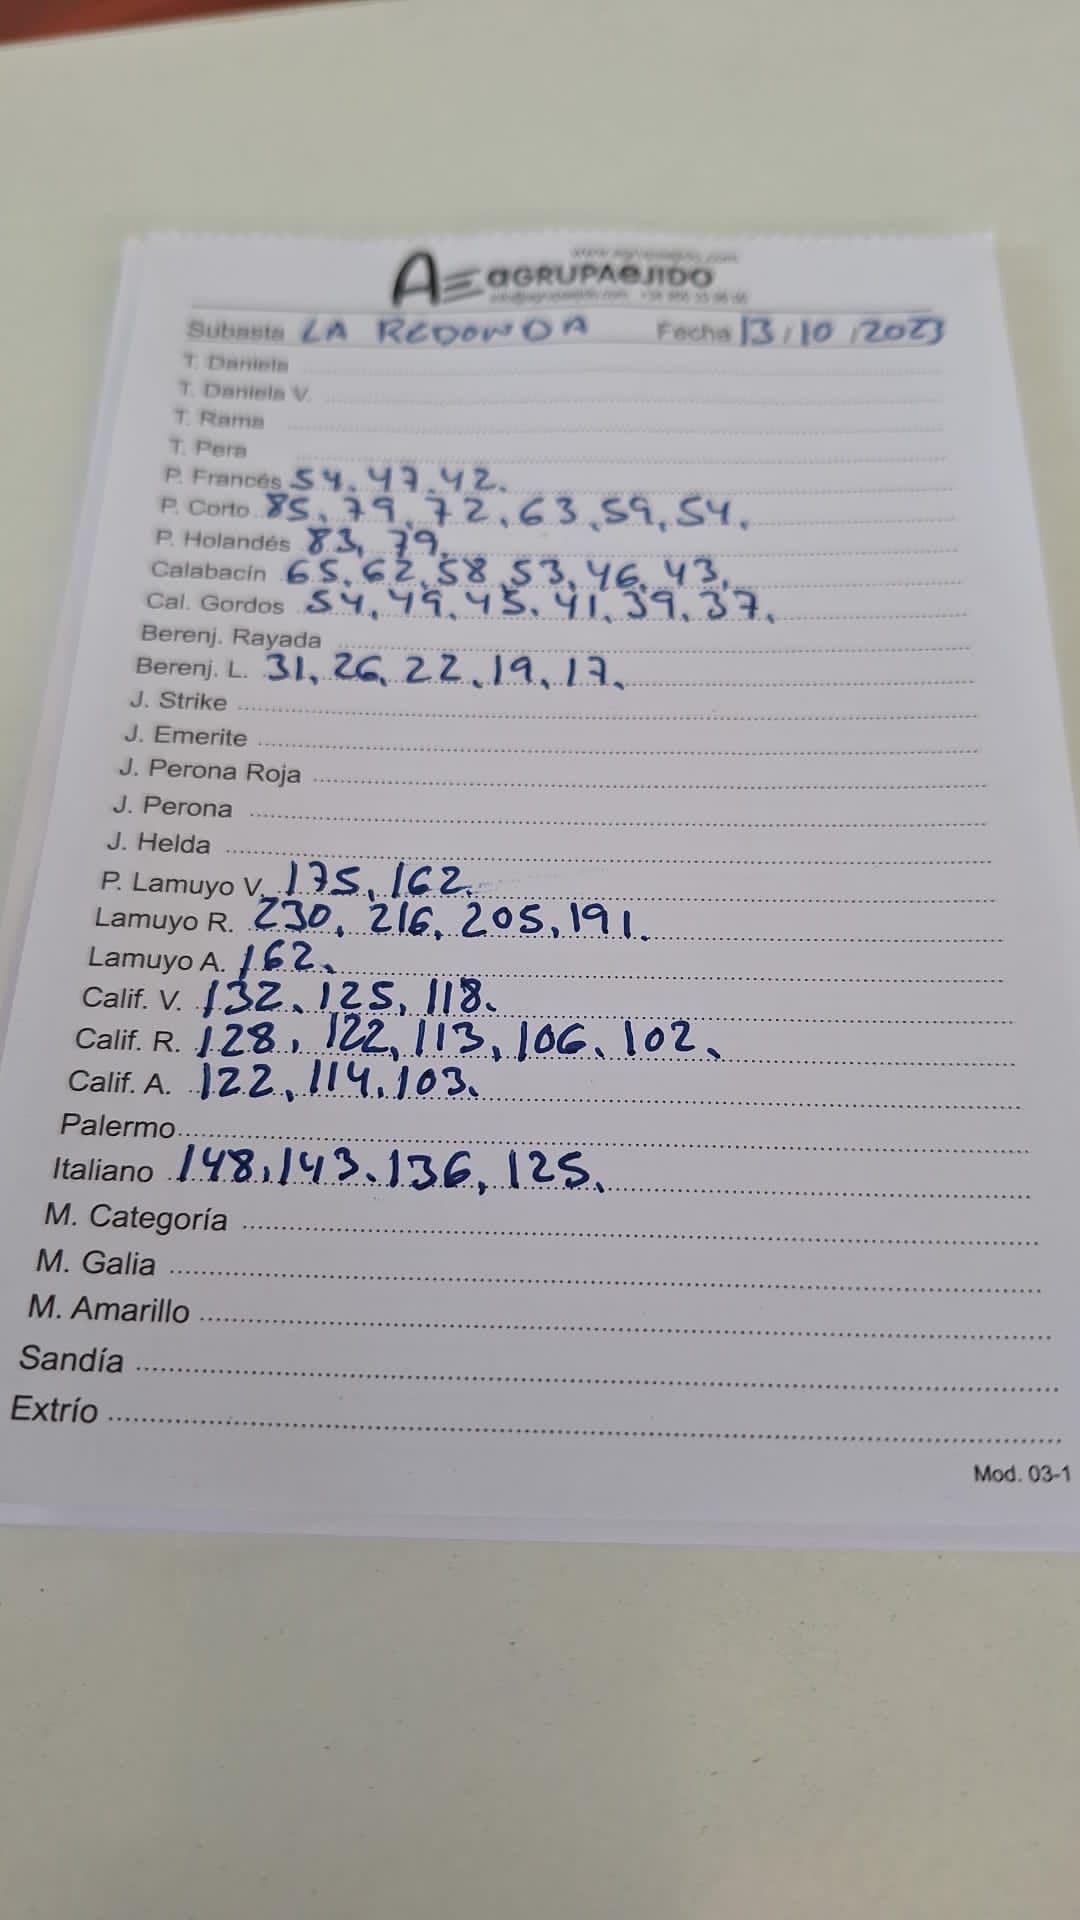 AGRUPAEJIDO
Subasta LA REDONDA Fecha 13/10/2023
T. Daniela
T. Daniela V.
T. Rama
T. Pera
P. Francés 54, 47, 42.
P. Corto 85, 79, 72, 63, 59, 54.
P. Holandés 83, 79.
Calabacín 65, 62, 58, 53, 46, 43.
Cal. Gordos 54, 49, 45, 41, 39, 37.
Berenj. Rayada
Berenj. L. 31, 26, 22, 19, 17.
J. Strike
J. Emerite
J. Perona Roja
J. Perona
J. Helda
P. Lamuyo V. 175, 162.
Lamuyo R. 230, 216, 205, 191.
Lamuyo A. 162.
Calif. V. 132, 125, 118.
Calif. R. 128, 122, 113, 106, 102.
Calif. A. 122, 114, 103.
Palermo
Italiano 148, 143, 136, 125.
M. Categoría
M. Galia
M. Amarillo
Sandía
Extrío
Mod. 03-1